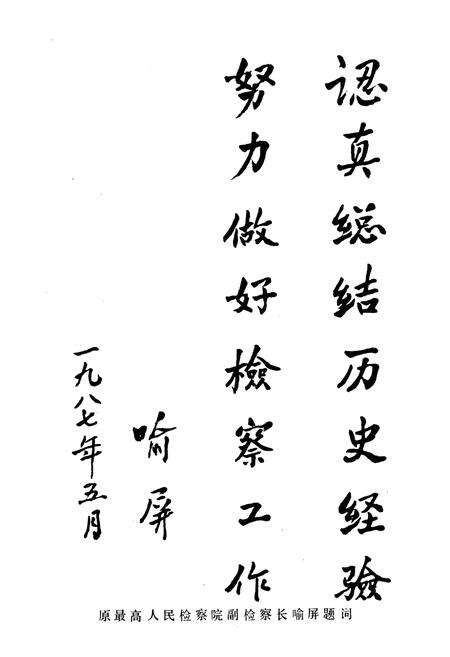 認真総结历史経驗
努力做好檢察工作
喻屏
一九八七年五月
原最高人民检察院副检察长喻屏题词